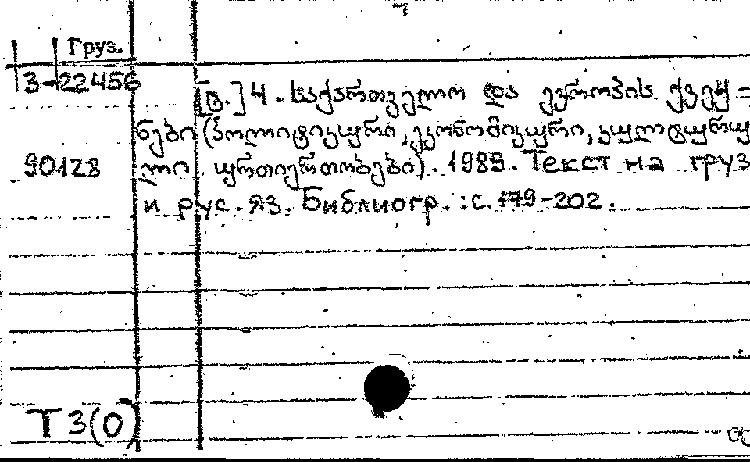 Груз.
3-22456
[ტ.] 4. საქართველო და ევროპის ქვეყ=
ნები (პოლიტიკური, ეკონომიკური, კულტურუ
90128 ლი ურთიერთობები). 1989. Текст на груз
и рус. яз. Библиогр.: с. 179-202.
Т3(0)